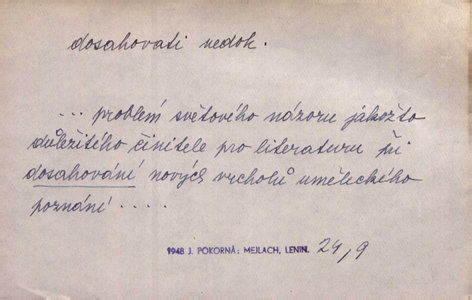 dosahovati nedok.
... problém světového názoru jakožto
důležitého činitele pro literaturu při
dosahování nových vrcholů uměleckého
poznání ....
1948 J. POKORNÁ: MEJLACH, LENIN. 24,9